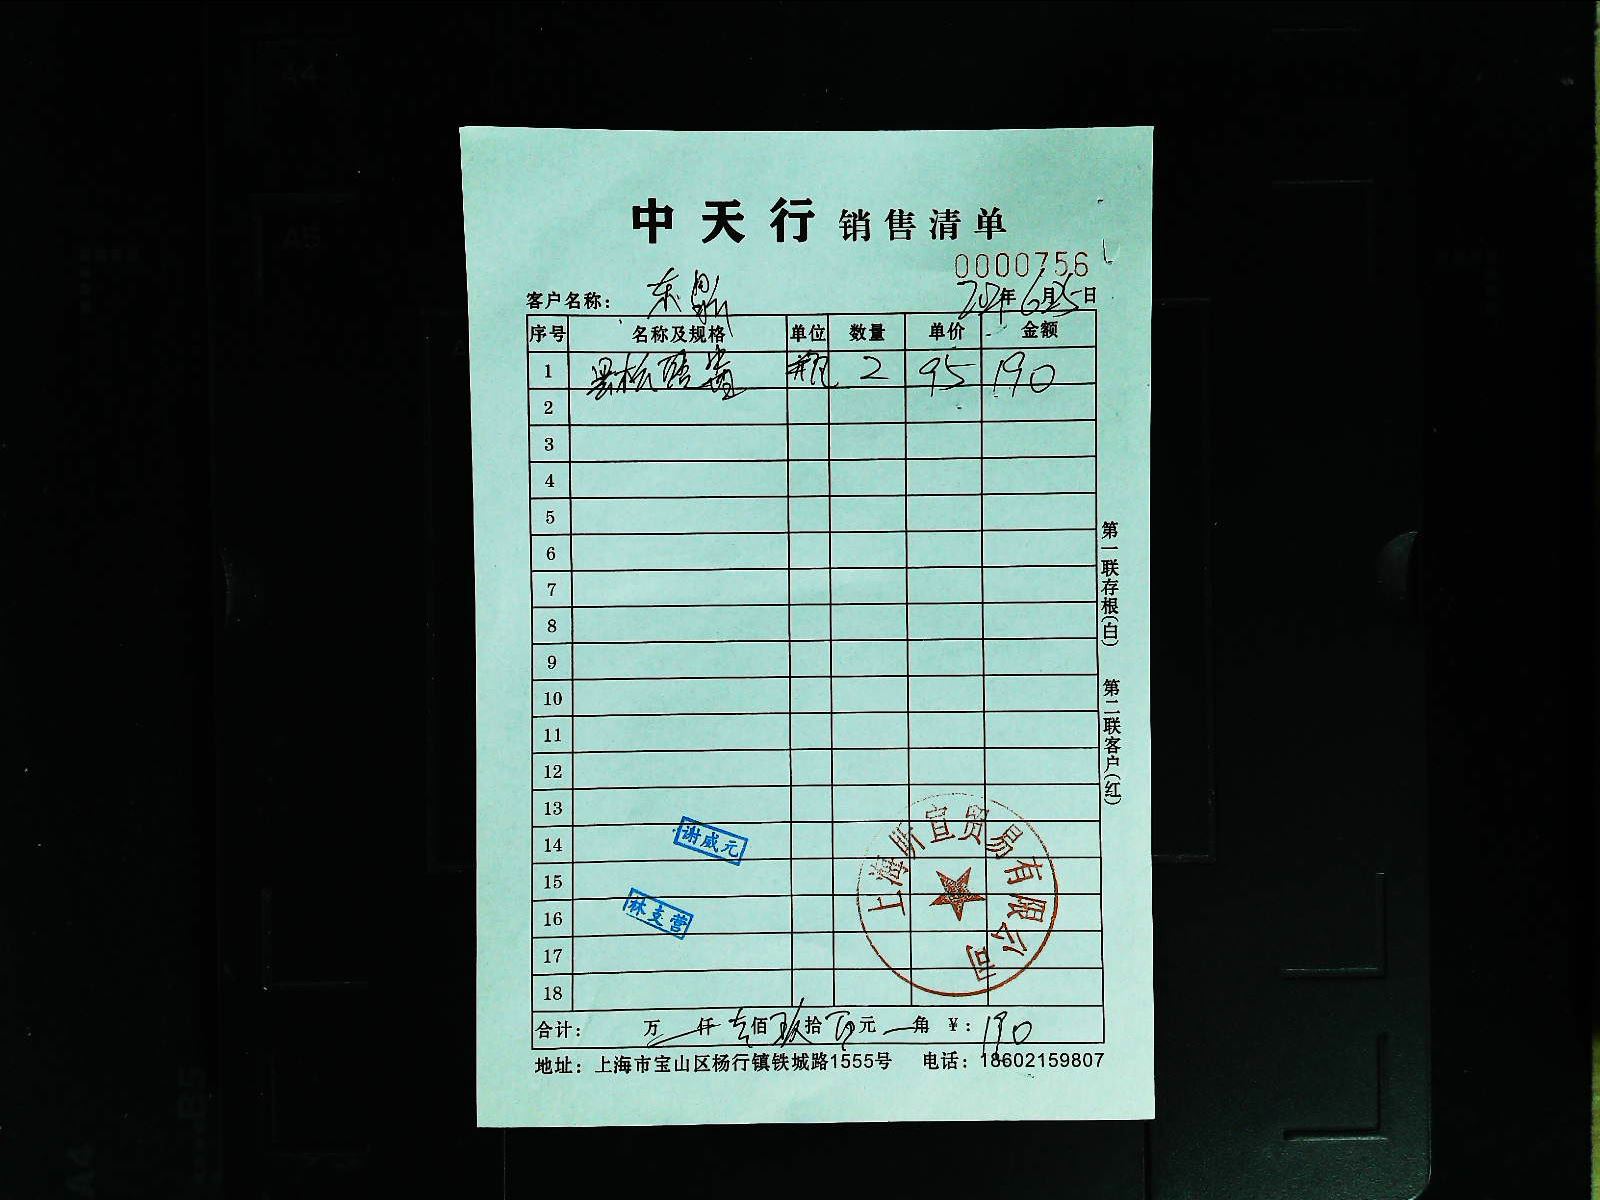 中天行 销售清单
0000756
客户名称： 东鼎 年6月25日
序号 名称及规格 单位 数量 单价 金额
1 瓶 2 95 190
2
3
4
5
6
7
8
9
10
11
12
13
14
15
16
17
18
谢威元
林支营
上海昕宣贸易有限公司
合计： 万 仟 壹佰 玖拾 元 角 ￥：190
地址：上海市宝山区杨行镇铁城路1555号 电话：18602159807
第一联存根（白） 第二联客户（红）
A4
A5
B5
A4